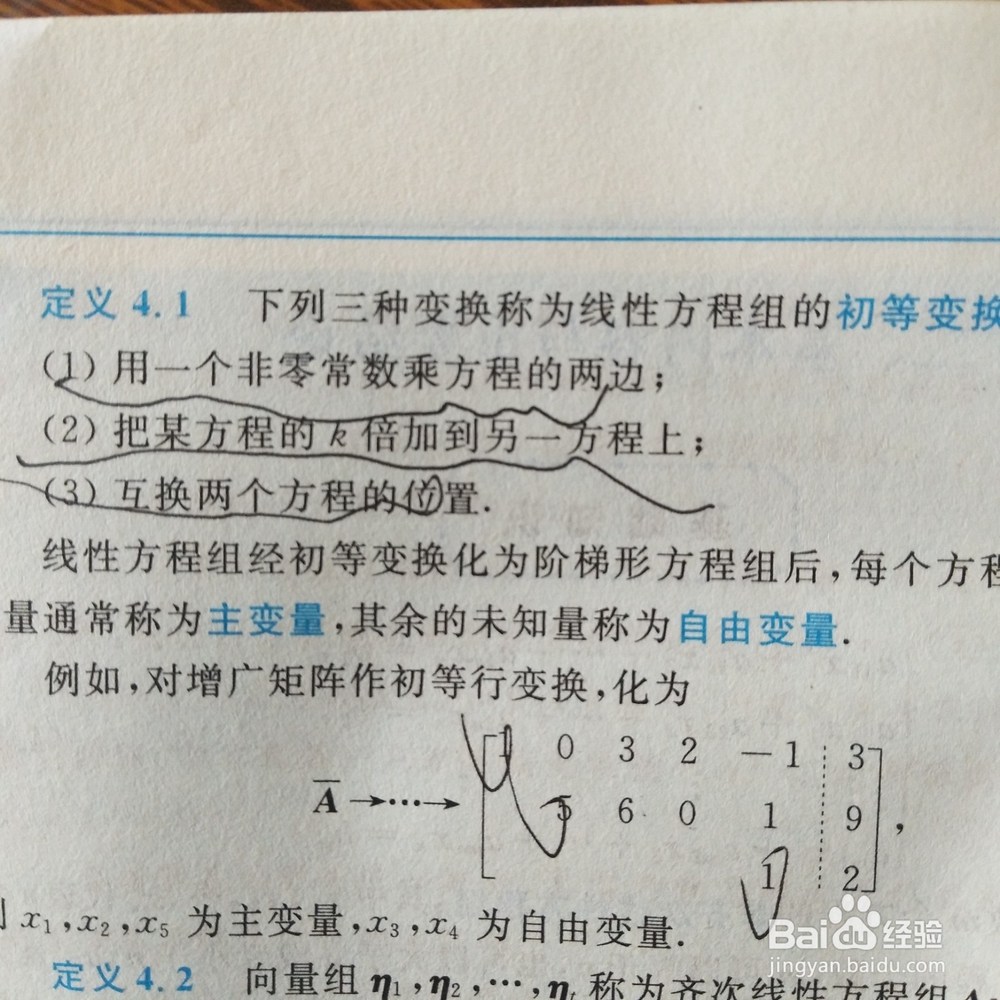 定义 4.1 下列三种变换称为线性方程组的初等变换
(1) 用一个非零常数乘方程的两边；
(2) 把某方程的 k 倍加到另一方程上；
(3) 互换两个方程的位置．
线性方程组经初等变换化为阶梯形方程组后，每个方程
量通常称为主变量，其余的未知量称为自由变量．
例如，对增广矩阵作初等行变换，化为
1 0 3 2 −1 3
A̅ →⋯→ 5 6 0 1 9 ，
1 2
x₁，x₂，x₅ 为主变量，x₃，x₄ 为自由变量．
定义 4.2 向量组 η₁，η₂，⋯，ηₜ 称为齐次线性方程组
Baidu经验
jingyan.baidu.com